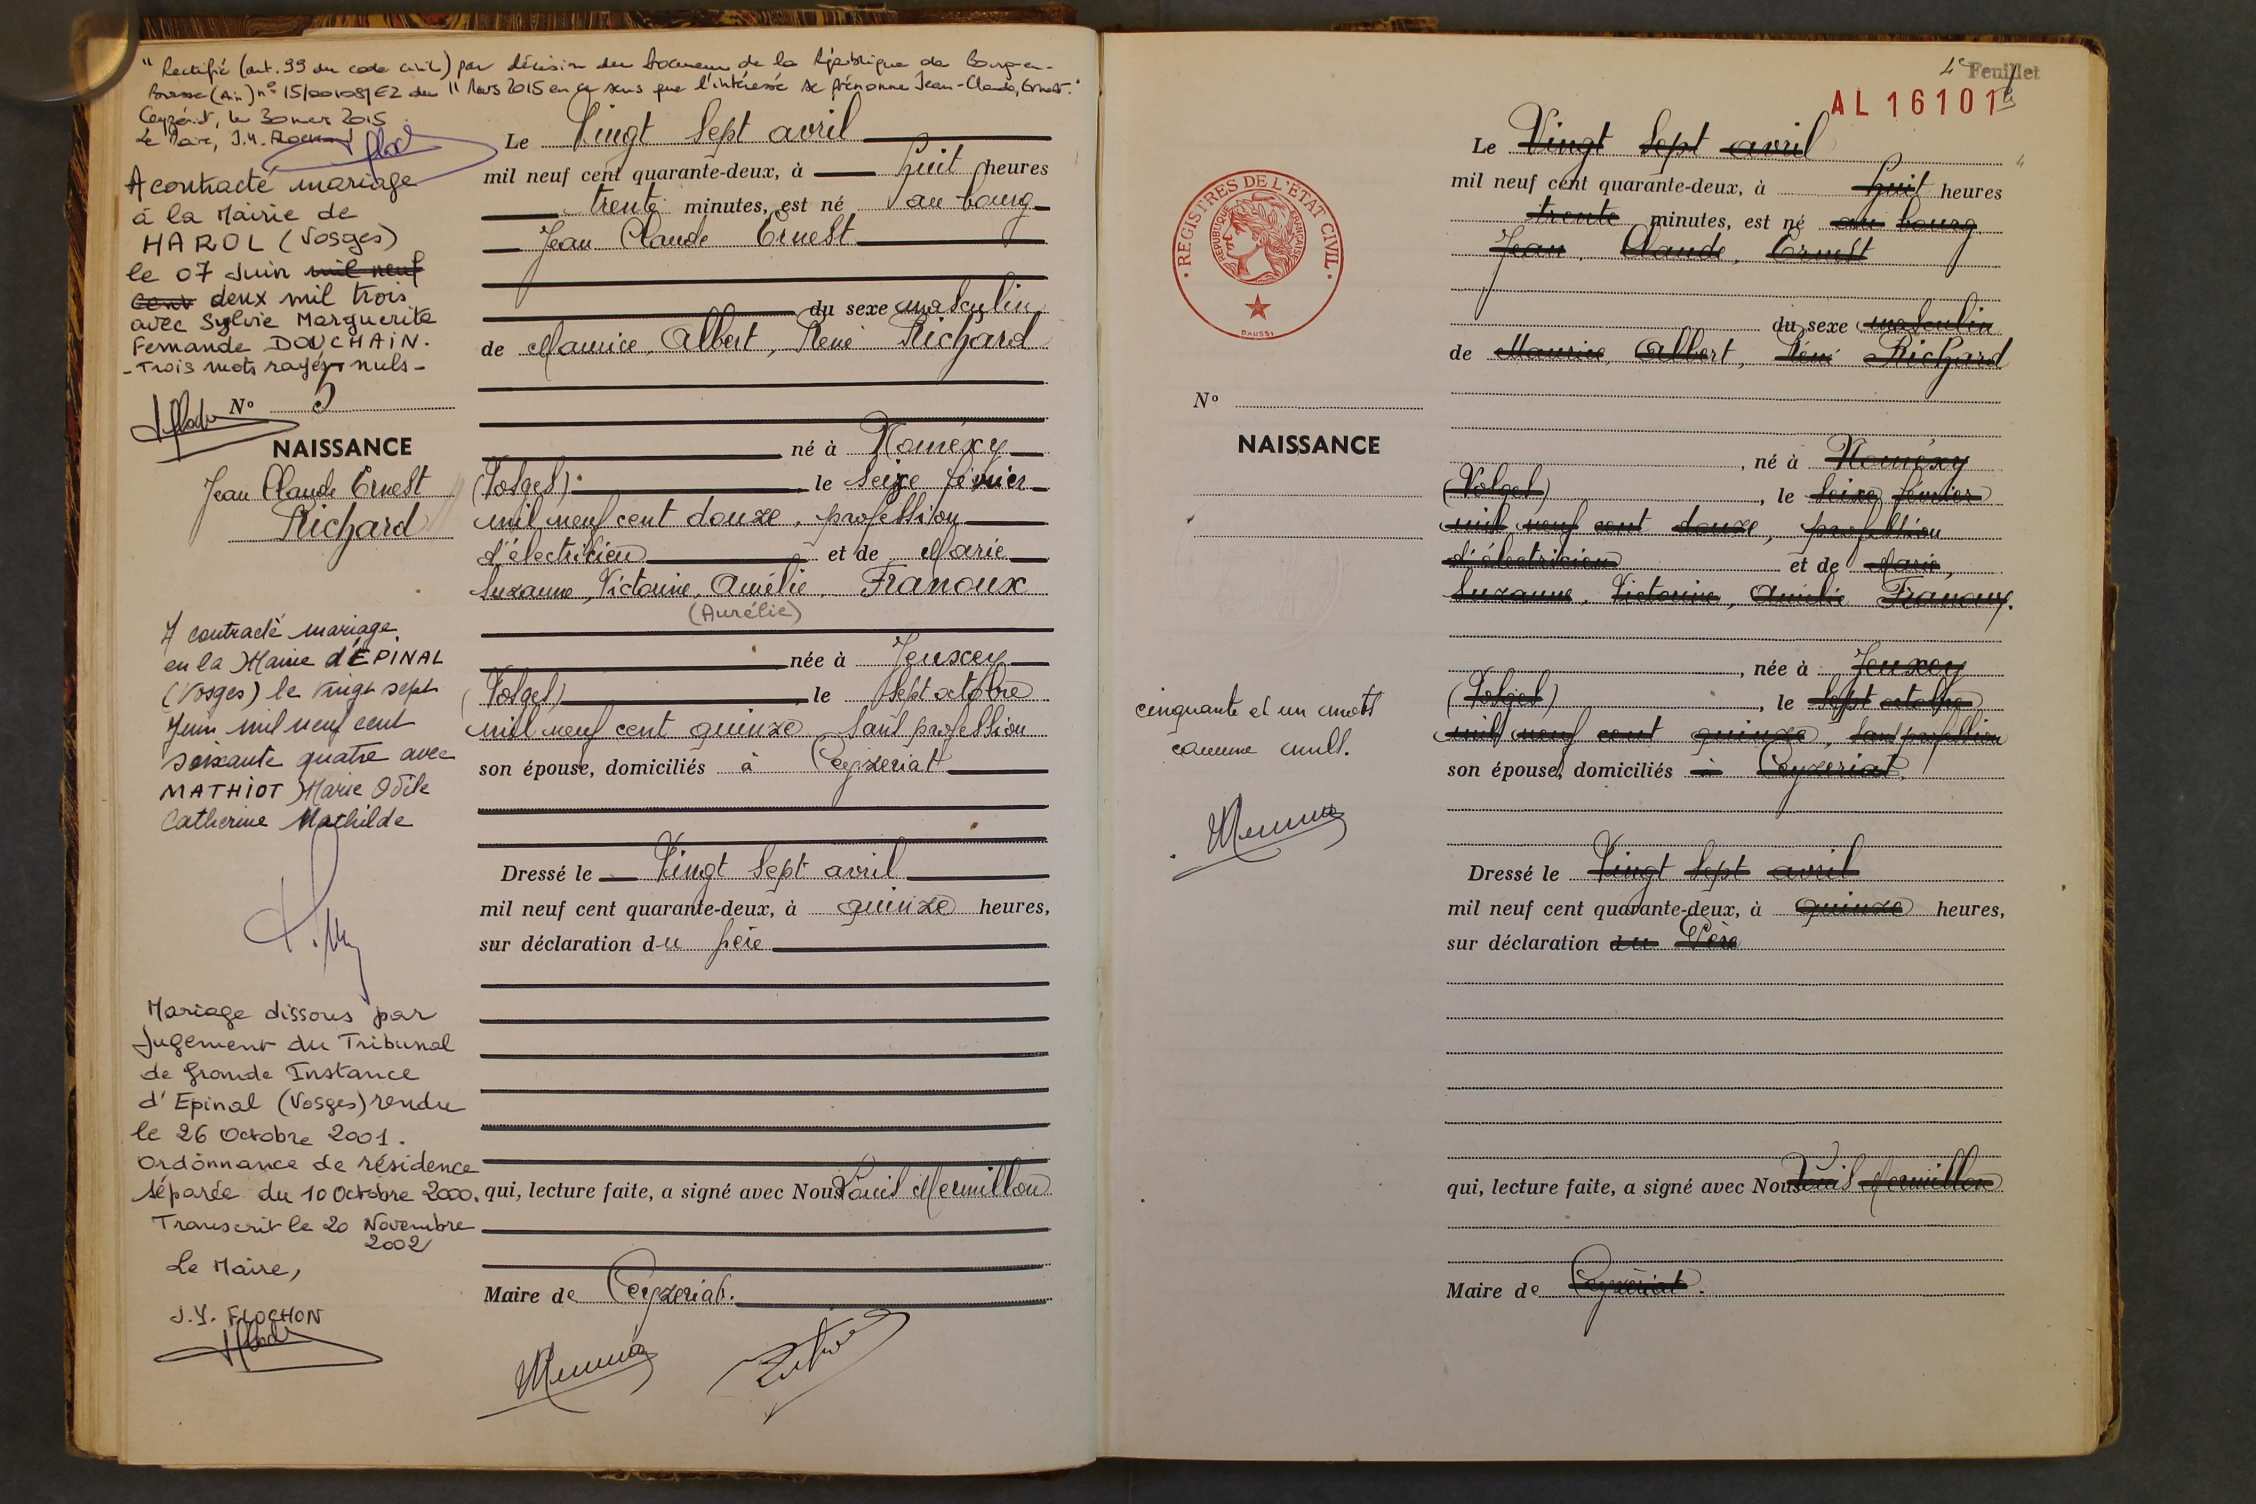 "Rectifié (art. 99 du code civil) par décision du Procureur de la République de Bourg-en-
Bresse (Ain) n° 15/001081E2 du 11 Mars 2015 en ce sens que l'intéressé se prénomme Jean-Claude, Ernest."
Ceyzériat, le 30 mars 2015
Le Maire, J.Y. FLOCHON
A contracté mariage
à la Mairie de
HAROL (Vosges)
le 07 Juin mil neuf
cent deux mil trois
avec Sylvie Marguerite
Fernande DOUCHAIN.
- Trois mots rayés nuls -
N° 5
NAISSANCE
Jean Claude Ernest
Richard
A contracté mariage
en la Mairie d'ÉPINAL
(Vosges) le vingt sept
Juin mil neuf cent
soixante quatre avec
MATHIOT Marie Odile
Catherine Mathilde
Mariage dissous par
Jugement du Tribunal
de Grande Instance
d'Epinal (Vosges) rendu
le 26 Octobre 2001.
Ordonnance de résidence
séparée du 10 Octobre 2000.
Transcrit le 20 Novembre
2002
Le Maire,
J.Y. FLOCHON
Le Vingt sept avril
mil neuf cent quarante-deux, à huit heures
trente minutes, est né au bourg
Jean Claude Ernest
du sexe masculin
de Maurice, Albert, René Richard
né à Noméxy
(Vosges) le seize février
mil neuf cent douze, profession
d'électricien et de Marie
Suzanne, Victorine, Amélie, Franoux
(Aurélie)
née à Jeuxey
(Vosges) le sept octobre
mil neuf cent quinze sans profession
son épouse, domiciliés à Ceyzeriat
Dressé le Vingt sept avril
mil neuf cent quarante-deux, à quinze heures,
sur déclaration du père
qui, lecture faite, a signé avec Nous Louis Mermillon
Maire de Ceyzeriat.
4e Feuillet
AL 16101
REGISTRES DE L'ÉTAT CIVIL
RÉPUBLIQUE FRANÇAISE
DAUSSY
N°
NAISSANCE
cinquante et un mots
comme nuls.
Le Vingt sept avril
mil neuf cent quarante-deux, à huit heures
trente minutes, est né au bourg
Jean, Claude, Ernest
du sexe masculin
de Maurice, Albert, René Richard
, né à Noméxy
(Vosges) , le seize février
mil neuf cent douze, profession
d'électricien et de Marie,
Suzanne, Victorine, Amélie Franoux.
, née à Jeuxey
(Vosges) , le sept octobre
mil neuf cent quinze, sans profession
son épouse, domiciliés à Ceyzeriat.
Dressé le Vingt sept avril
mil neuf cent quarante-deux, à quinze heures,
sur déclaration du Père
qui, lecture faite, a signé avec Nous Louis Mermillon
Maire de Ceyzeriat.